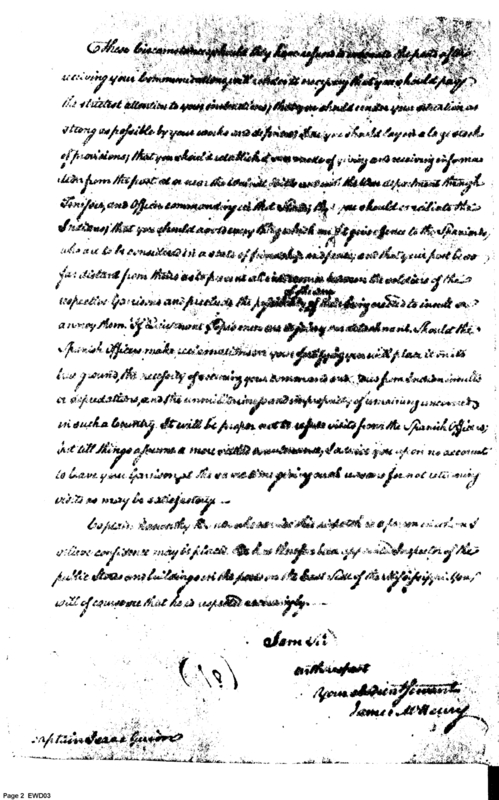 These Circumstances, should they have
receiving your Communications, will render it necessary that you should pay
the strictest attention to your instructions; that you should render your situation as
strong as possible by your works and defences; that you should lay in a large stock
of provisions; that you should establish some mode of giving and receiving informa
tion from the post at or near the and with the War department through
Tennessee, and Officer commanding in that that you should conciliate the
Indians; that you should avoid every thing which may give offence to the Spaniards,
who are to be considered in a state of friendship and peace; and that your post be so
far distant from theirs as to prevent all intercourse between the soldiers of the
respective Garrisons and preclude the possibility of their being to insult or
annoy them. detachment. Should the
Spanish Officers make reclamations on your fortifying you will place it on its
true ground, the necessity of securing your command and from Indian insults
or depredations, and the and impropriety of remaining uncovered
in such a Country. It will be proper not to refuse visits from the Spanish Officers;
but till things assume a more settled I advise you upon no account
to leave your Garrison, at the same time giving such reasons for not returning
visits as may be satisfactory.
Captain this dispatch is a person in whom I
believe confidence may be placed. He has therefore been appointed Inspector of the
public Stores and buildings on the posts on the East side of the Mississippi. You
will of course see that he is respected accordingly.
I am Sir
with respect
Your obedient Servant
James McHenry
(18)
Captain Isaac Guion
Page 2 EWD03